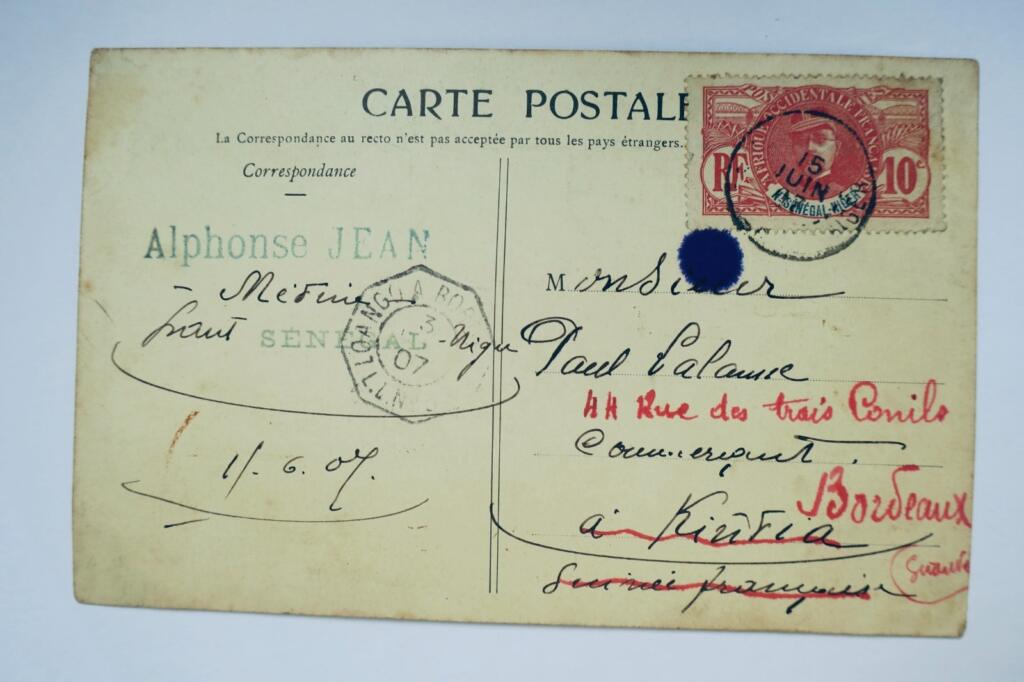 CARTE POSTALE
La Correspondance au recto n'est pas acceptée par tous les pays étrangers.
Correspondance
AFRIQUE OCCIDENTALE FRANÇAISE
RF
10c
Hᵗ SÉNÉGAL-NIGER
15
JUIN
Alphonse JEAN
Médine
SÉNÉGAL
haut Niger
LOANGO A BOR
3
07
L.L.N
6. 07.
Monsieur
Paul Lalanne
44 Rue des trois Conils
Commerçant.
Bordeaux
à Kindia
Guinée française